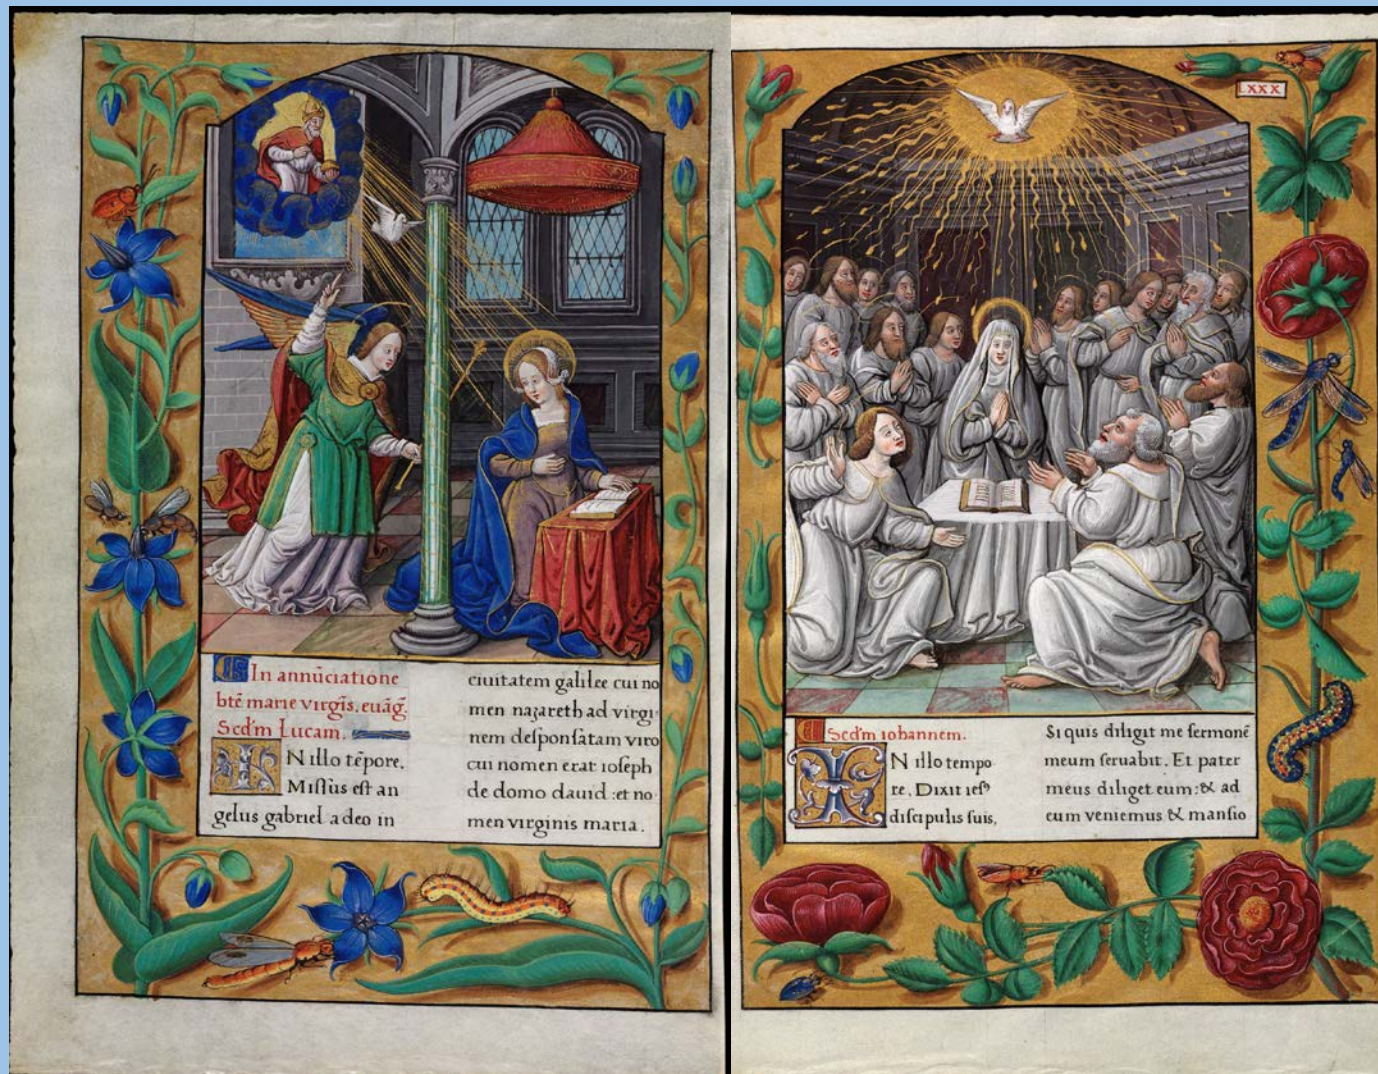 In annūciatione
btē marie virgīs. euāg̃.
Scd'm Lucam.
IN illo tēpore.
Missus est an
gelus gabriel a deo in
ciuitatem galilee cui no
men nazareth ad virgi
nem desponsatam viro
cui nomen erat ioseph
de domo dauid : et no
men virginis maria.
LXXX
Scd'm iohannem.
IN illo tempo
re. Dixit iesꝰ
discipulis suis.
Si quis diligit me sermonē
meum seruabit. Et pater
meus diliget eum : & ad
eum veniemus & mansio